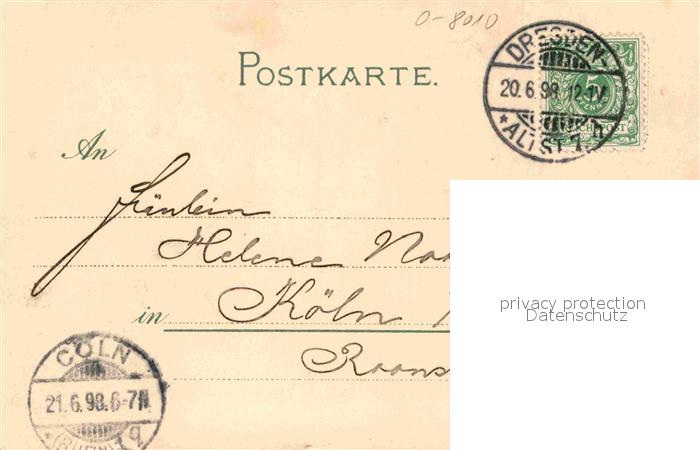 0-8010
POSTKARTE.
DRESDEN-
20.6.98. 12-1V.
* ALTST. 7. h
5
PFENNIG
REICHSPOST
An
Fräulein
Helene
in Köln
Roons
CÖLN
21.6.98. 6-7N
*(RHEIN) 1 q
privacy protection
Datenschutz